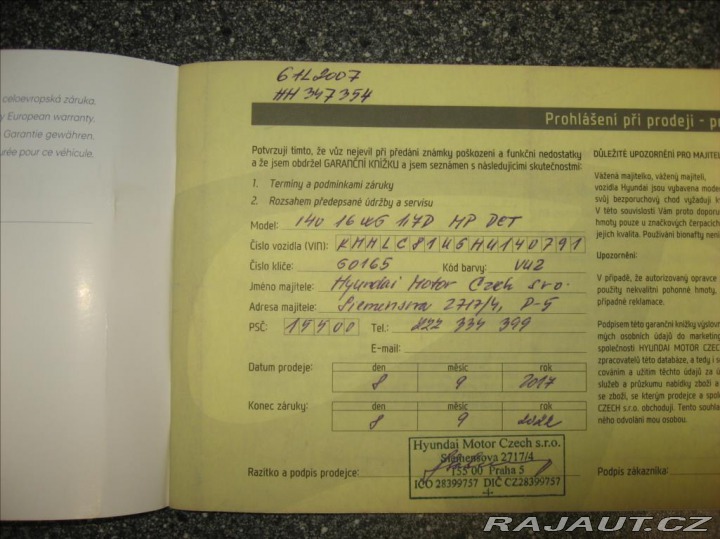 celoevropská záruka.
y European warranty.
Garantie gewähren.
urée pour ce véhicule.
6L2007
HH 347354
Prohlášení při prodeji - p
Potvrzuji tímto, že vůz nejevil při předání známky poškození a funkční nedostatky
a že jsem obdržel GARANČNÍ KNÍŽKU a jsem seznámen s následujícími skutečnostmi:
1. Termíny a podmínkami záruky
2. Rozsahem předepsané údržby a servisu
Model: i40 16 WG 1.7D HP DCT
Číslo vozidla (VIN): KMHLC81UGHU140791
Číslo klíče: G0165 Kód barvy: VU2
Jméno majitele: Hyundai Motor Czech s.r.o.
Adresa majitele: Siemensova 2717/4, P-5
PSČ: 15500 Tel.: 222 334 399
E-mail:
Datum prodeje: den měsíc rok
8 9 2017
Konec záruky: den měsíc rok
8 9 2022
Hyundai Motor Czech s.r.o.
Siemensova 2717/4
155 00 Praha 5
IČO 28399757 DIČ CZ28399757
-4-
Razítko a podpis prodejce:
Podpis zákazníka:
DŮLEŽITÉ UPOZORNĚNÍ PRO MAJITEL
Vážená majitelko, vážený majiteli,
vozidla Hyundai jsou vybavena moder
svůj bezporuchový chod vyžadují k
V této souvislosti Vám proto doporu
hmoty pouze u značkových čerpacích
jejich kvalita. Používání bionafty není
Upozornění:
V případě, že autorizovaný opravce
použity nekvalitní pohonné hmoty,
případné reklamace.
Podpisem této garanční knížky výslov
mých osobních údajů do marketing
společnosti HYUNDAI MOTOR CZEC
zpracovatelů této databáze, a tedy i s
cováním a užitím těchto údajů za ú
služeb a průzkumu nabídky zboží a
se zboží, se kterým prodejce a spol
CZECH s.r.o. obchodují. Tento souhla
ného odvolání mou osobou.
RAJAUT.CZ